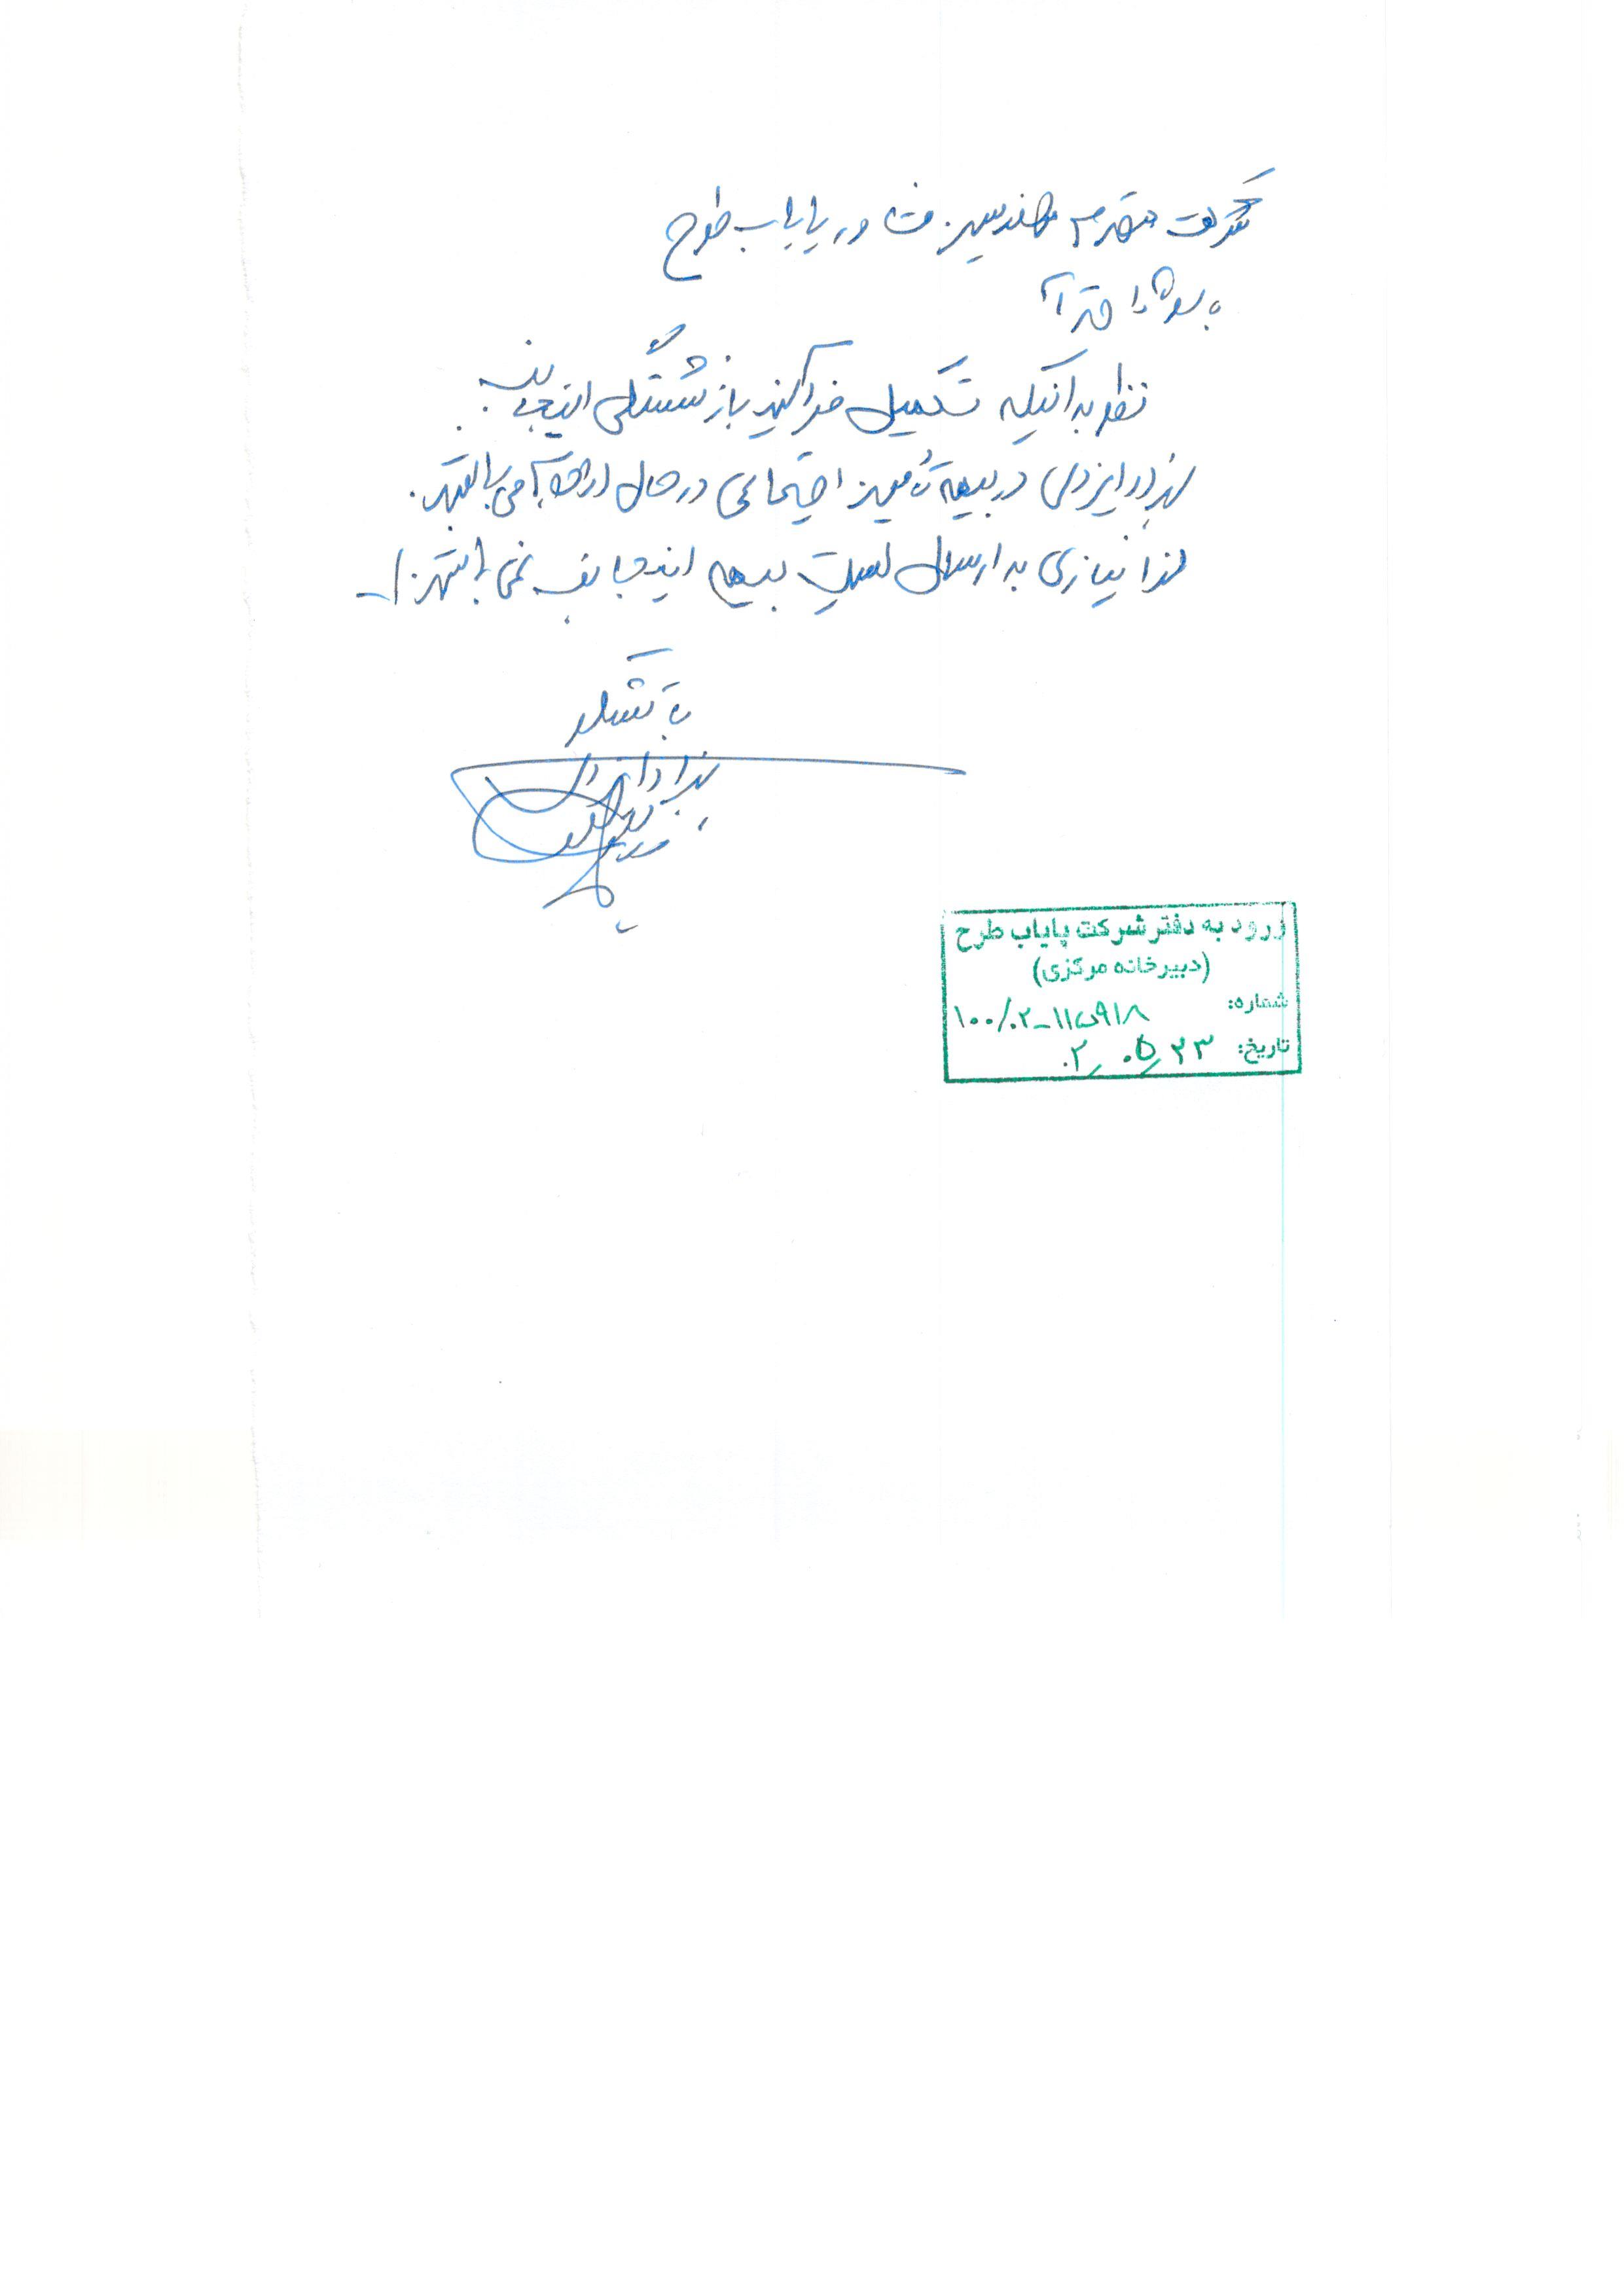 شرکت محترم مهندسین مشاور پایاب طرح
با سلام و احترام
نظر به اینکه تکمیل فرآیند بازنشستگی اینجانب
بهزاد ایزدی در بیمه تأمین اجتماعی در حال اقدام می باشد.
لذا نیازی به ارسال لیست بیمه اینجانب نمی باشد./
با تشکر
بهزاد ایزدی
ورود به دفتر شرکت پایاب طرح
(دبیرخانه مرکزی)
شماره: ۱۰۰/۰۲-۱۱۵۹۱۸
تاریخ: ۰۲/۰۵/۲۳